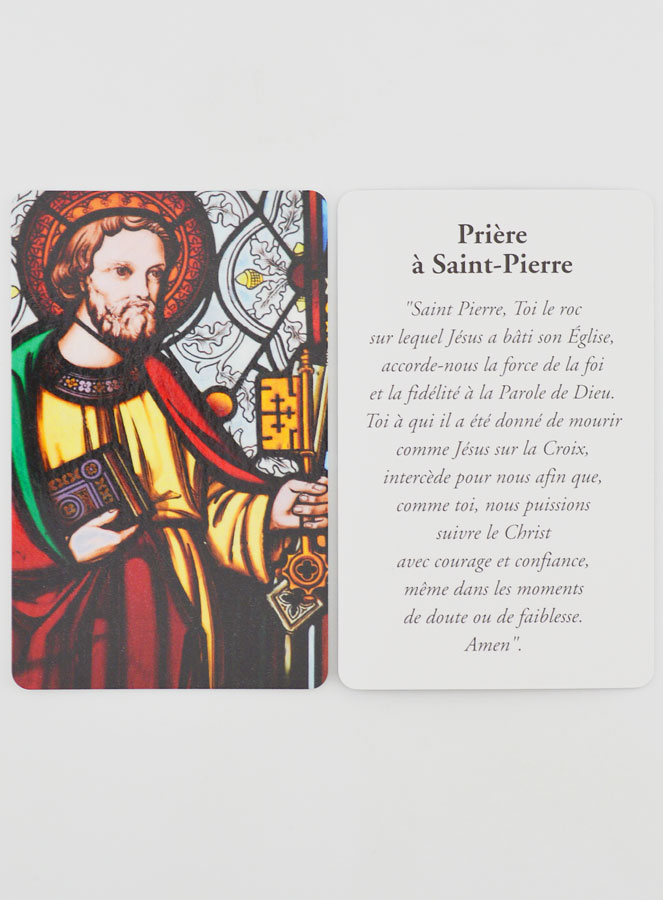 Prière
à Saint-Pierre
"Saint Pierre, Toi le roc
sur lequel Jésus a bâti son Église,
accorde-nous la force de la foi
et la fidélité à la Parole de Dieu.
Toi à qui il a été donné de mourir
comme Jésus sur la Croix,
intercède pour nous afin que,
comme toi, nous puissions
suivre le Christ
avec courage et confiance,
même dans les moments
de doute ou de faiblesse.
Amen".